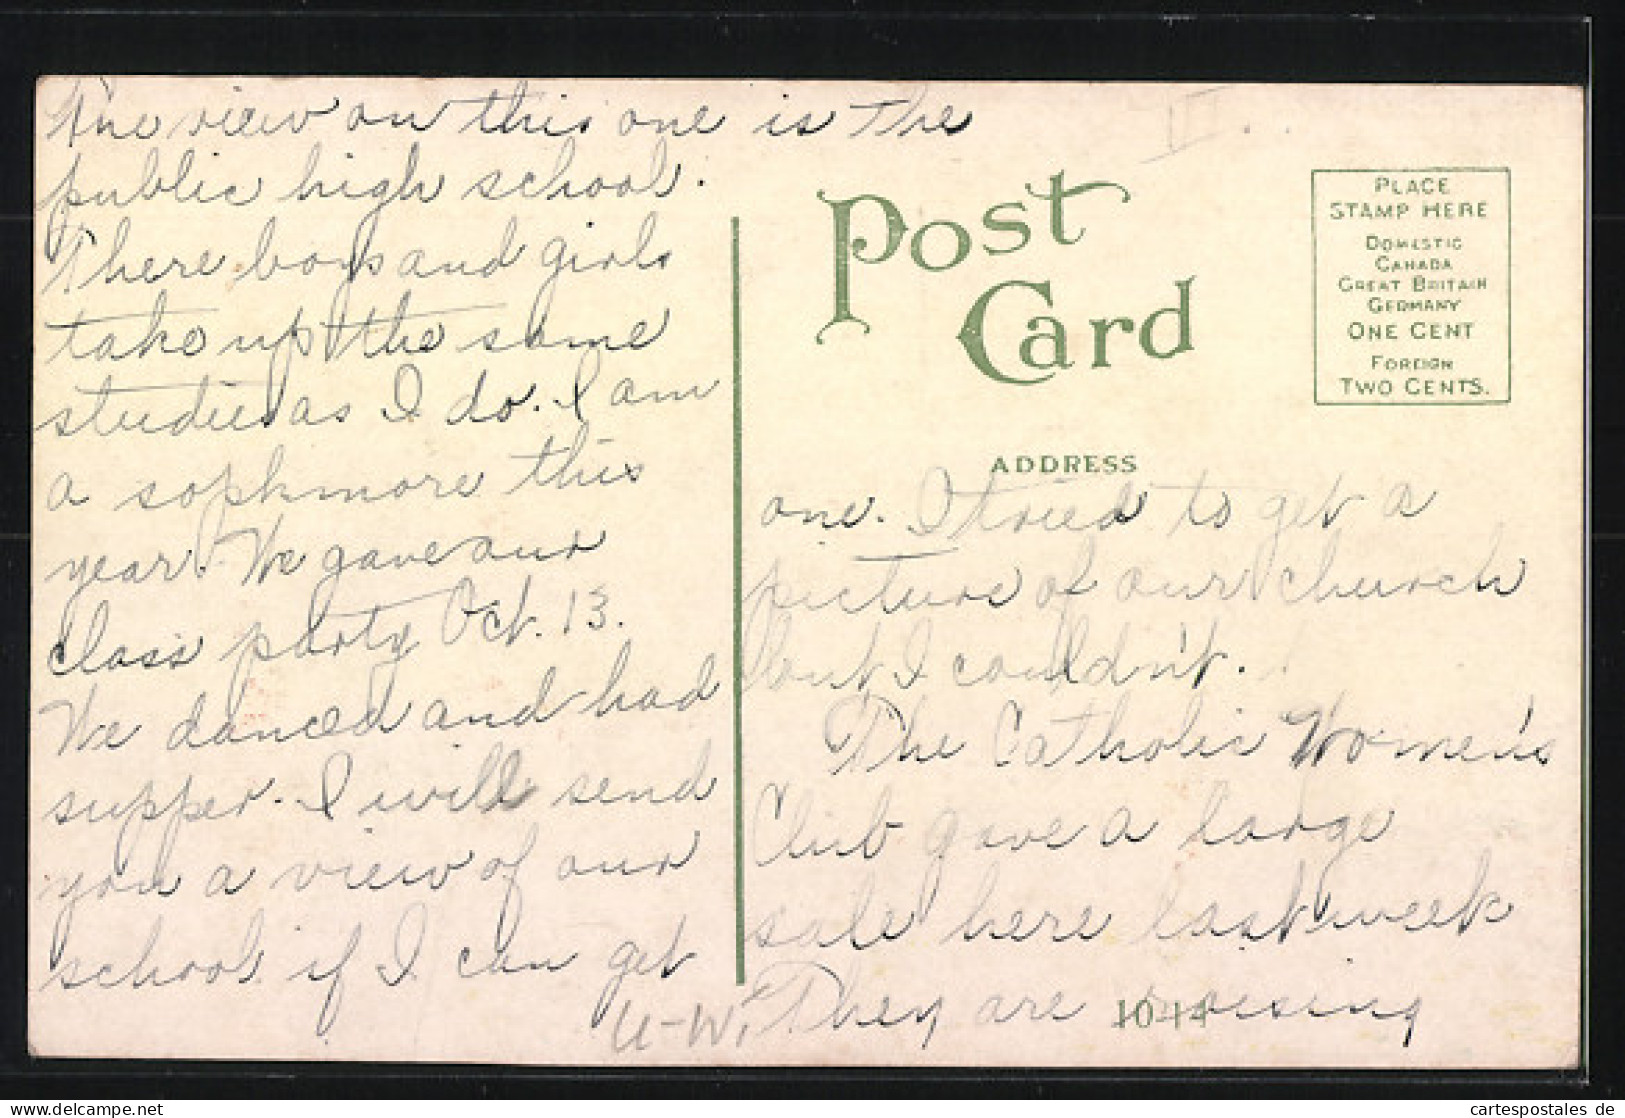 The view on this one is the
public high school.
There boys and girls
take up the same
studies as I do. I am
a sophmore this
year. We gave our
class party Oct. 13.
We danced and had
supper. I will send
you a view of our
school if I can get
U-W.
Post
Card
PLACE
STAMP HERE
DOMESTIC
CANADA
GREAT BRITAIN
GERMANY
ONE CENT
FOREIGN
TWO CENTS.
ADDRESS
one. I tried to get a
picture of our church
but I couldn't.
The Catholic Women's
Club gave a large
sale here last week
They are raising
1044
www.cartespostales.de
cartespostales de